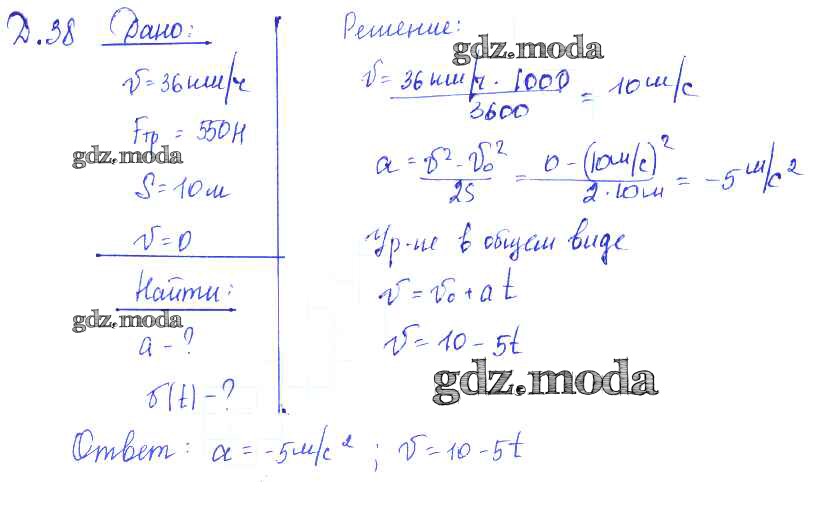 Д.38 Дано:
v = 36 км/ч
Fтр = 550 Н
gdz.moda
S = 10 м
v = 0
Найти:
gdz.moda
a - ?
v(t) - ?
Решение:
gdz.moda
v = 36 км/ч · 1000 / 3600 = 10 м/с
a = v² - v₀² / 2S = 0 - (10 м/с)² / 2 · 10 м = -5 м/с²
Ур-ие в общем виде
v = v₀ + at
v = 10 - 5t
gdz.moda
Ответ: a = -5 м/с² ; v = 10 - 5t